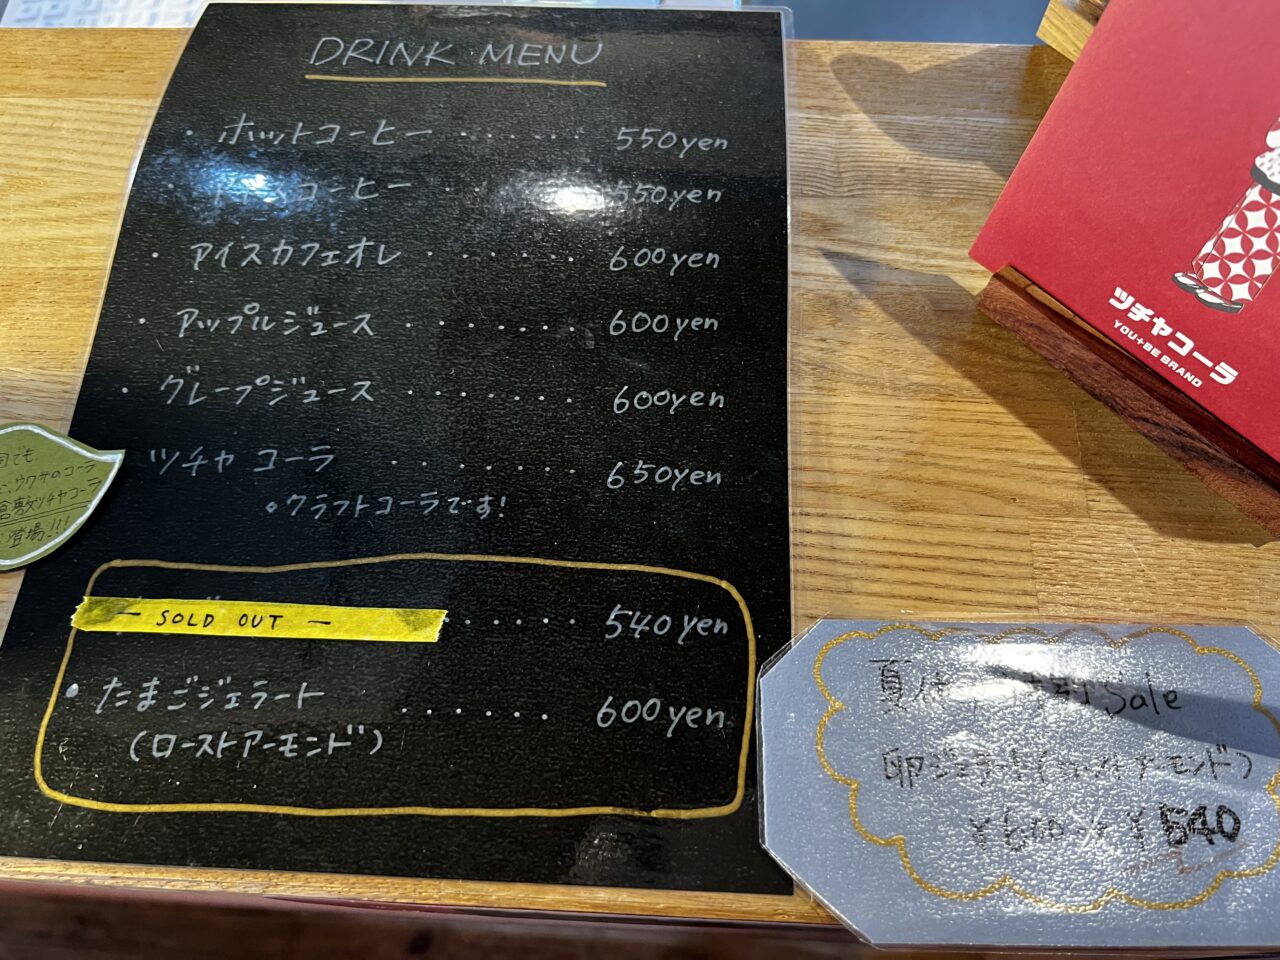 DRINK MENU
・ホットコーヒー ・・・・・・ 550yen
・アイスコーヒー ・・・・・・ 550yen
・アイスカフェオレ ・・・・・・ 600yen
・アップルジュース ・・・・・・ 600yen
・グレープジュース ・・・・・・ 600yen
ツチヤコーラ ・・・・・・ 650yen
◦クラフトコーラです!
ウワサのコーラ
倉敷ツチヤコーラ
登場!!!
— SOLD OUT — ・・・・・・ 540yen
・たまごジェラート ・・・・・・ 600yen
(ローストアーモンド)
Sale
卵ジェラート(ローストアーモンド)
¥600 → ¥540
ツチヤコーラ
YOU+BE BRAND